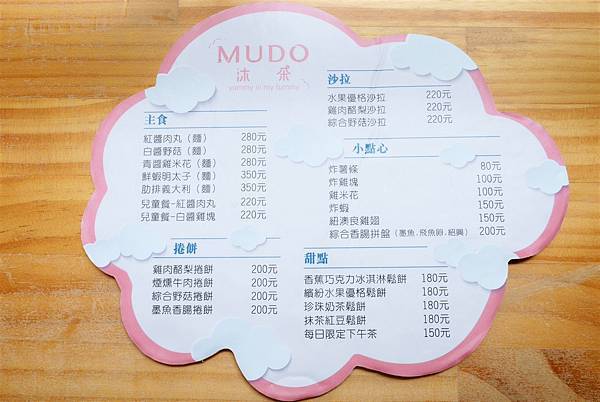 MUDO
沐茶
yummy in my tummy
主食
紅醬肉丸（麵） 280元
白醬野菇（麵） 280元
青醬雞米花（麵） 280元
鮮蝦明太子（麵） 350元
肋排義大利（麵） 350元
兒童餐-紅醬肉丸 220元
兒童餐-白醬雞塊 220元
捲餅
雞肉酪梨捲餅 200元
煙燻牛肉捲餅 200元
綜合野菇捲餅 200元
墨魚香腸捲餅 200元
沙拉
水果優格沙拉 220元
雞肉酪梨沙拉 220元
綜合野菇沙拉 220元
小點心
炸薯條 80元
炸雞塊 100元
雞米花 100元
炸蝦 150元
紐澳良雞翅 150元
綜合香腸拼盤（墨魚,飛魚卵,紹興） 200元
甜點
香蕉巧克力冰淇淋鬆餅 180元
繽紛水果優格鬆餅 180元
珍珠奶茶鬆餅 180元
抹茶紅豆鬆餅 180元
每日限定下午茶 150元